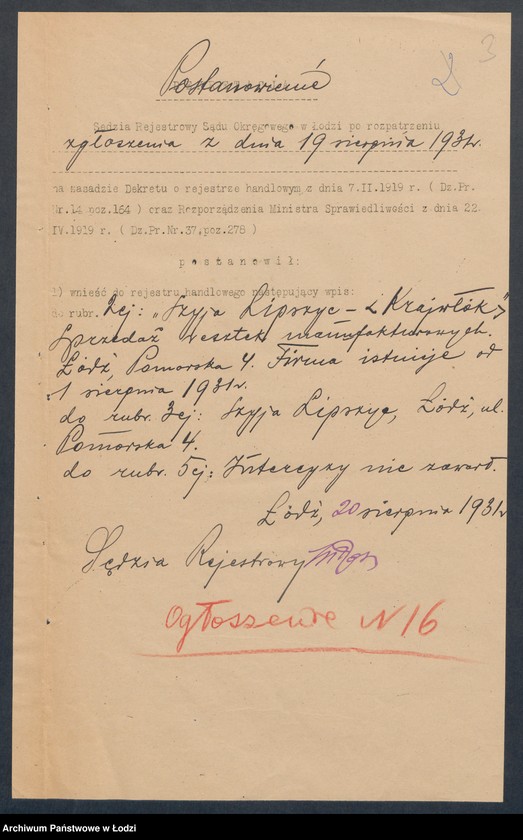 3
Postanowienie
Sędzia Rejestrowy Sądu Okręgowego w Łodzi po rozpatrzeniu
zgłoszenia z dnia 19 sierpnia 1931r.
na zasadzie Dekretu o rejestrze handlowym z dnia 7.II.1919 r. ( Dz.Pr.
Nr.14 poz.164 ) oraz Rozporządzenia Ministra Sprawiedliwości z dnia 22
IV.1919 r. ( Dz.Pr.Nr.37,poz.278 )
postanowił:
1) wnieść do rejestru handlowego następujący wpis:
do rubr. 2ej: "Szyja Lipszyc - < Krajwłók >"
Sprzedaż resztek manufakturowych.
Łódź, Pomorska 4. Firma istnieje od
1 sierpnia 1931r.
do rubr. 3ej: Szyja Lipszyc, Łódź, ul.
Pomorska 4.
do rubr. 5ej: Intercyzy nie zawarł.
Łódź, 20 sierpnia 1931r
Sędzia Rejestrowy
Ogłoszenie N 16
Archiwum Państwowe w Łodzi